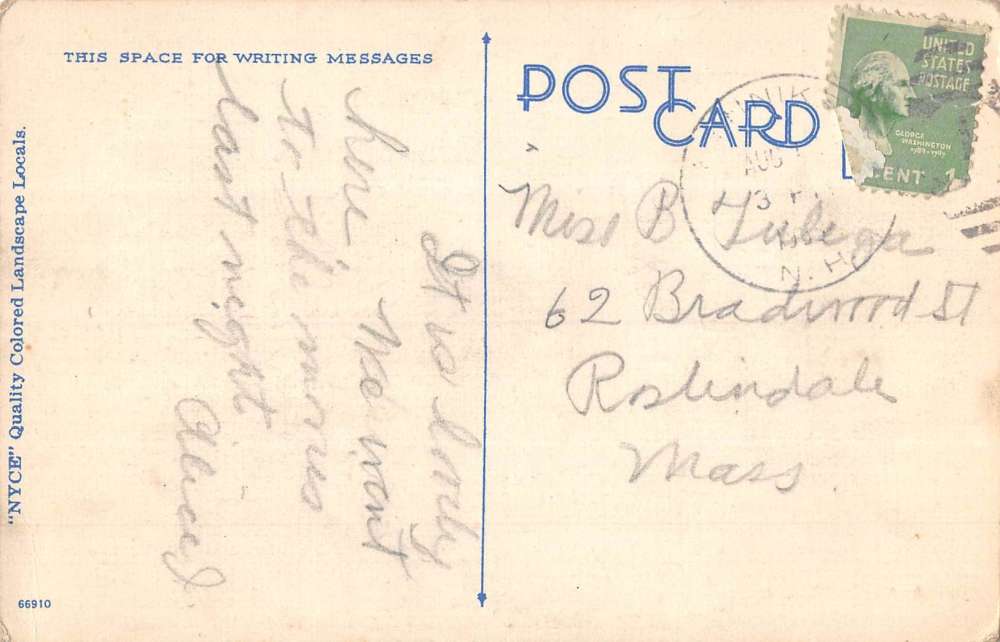 THIS SPACE FOR WRITING MESSAGES
POST CARD
UNITED
STATES
POSTAGE
GEORGE
WASHINGTON
1789-1797
CENT 1
AUG
3 P
N.H.
It is lovely
here We went
to the movies
last night
Alice
Miss B
62 Bradwood St
Roslindale
Mass.
"NYCE" Quality Colored Landscape Locals.
66910